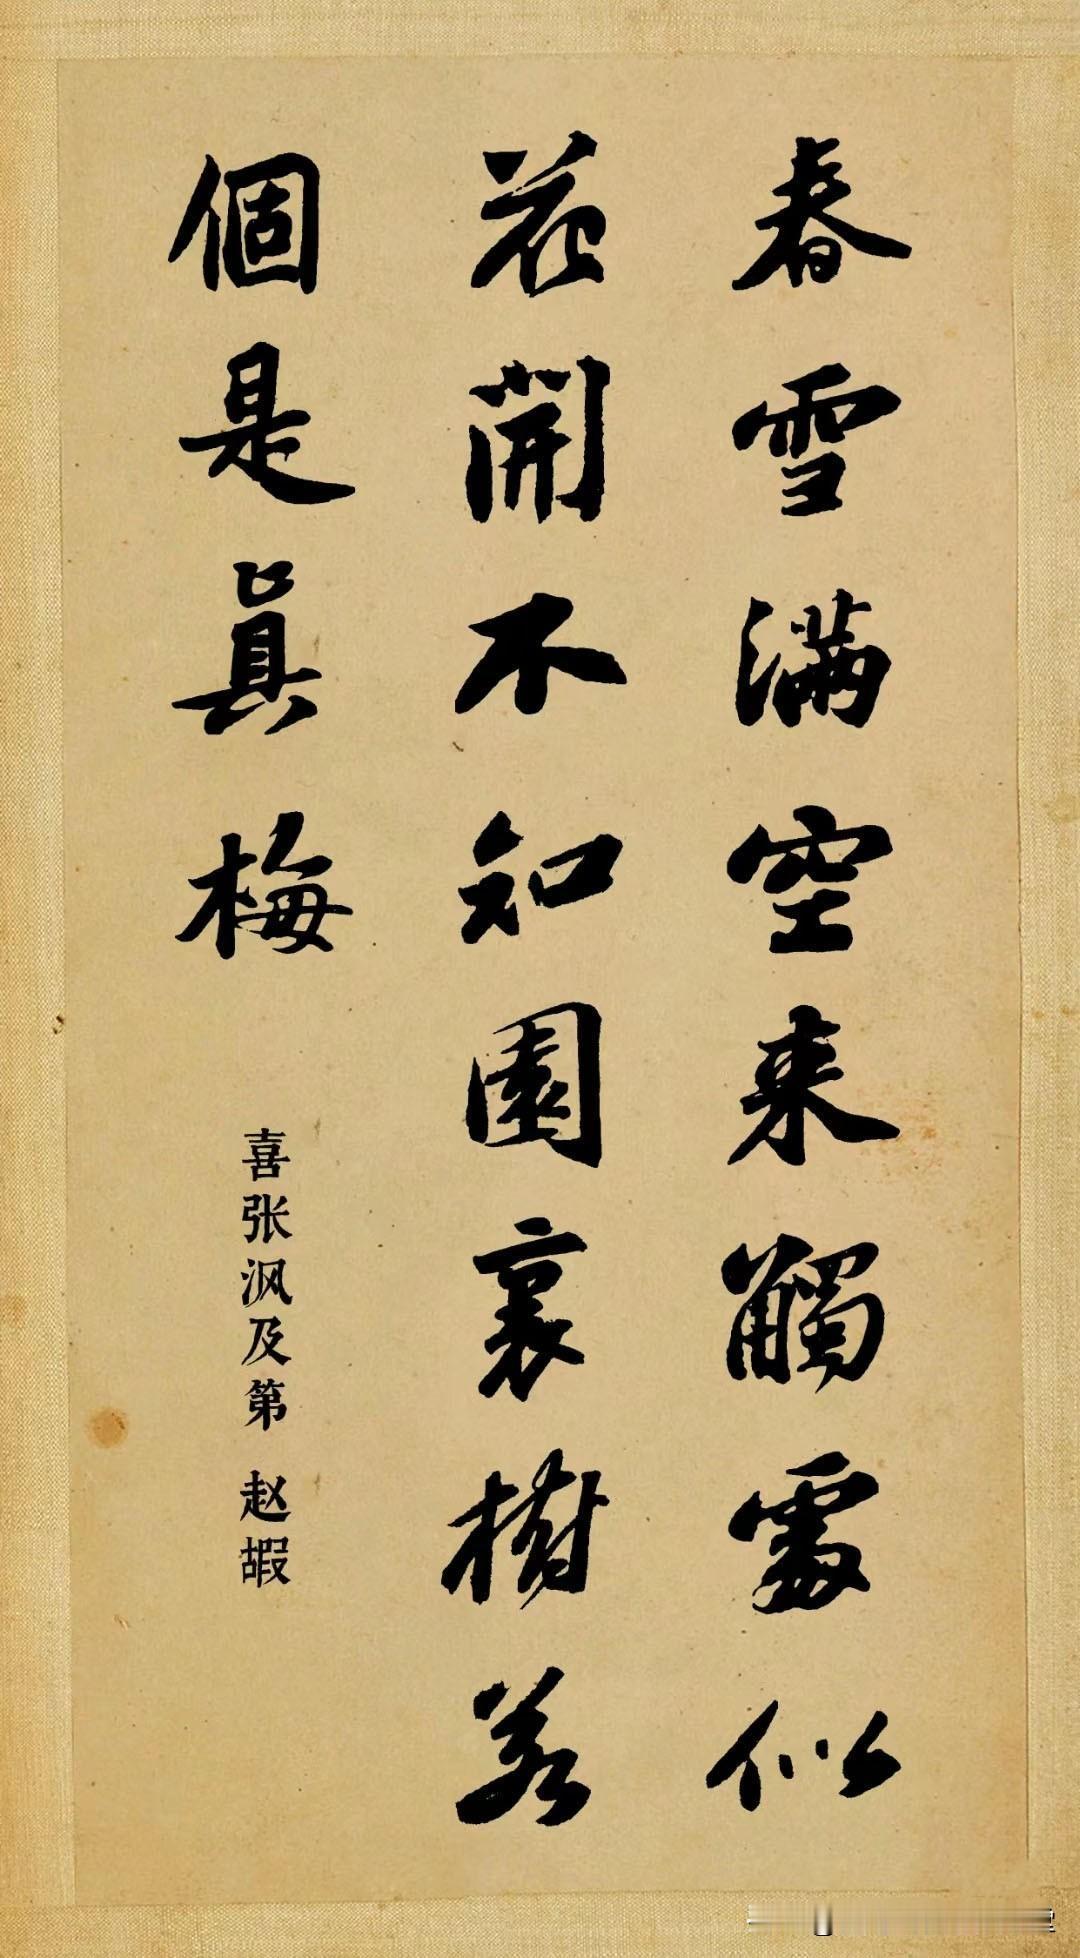 春雪满空来觸處似
花開不知園裏樹若
個是真梅
喜张沨及第 赵嘏